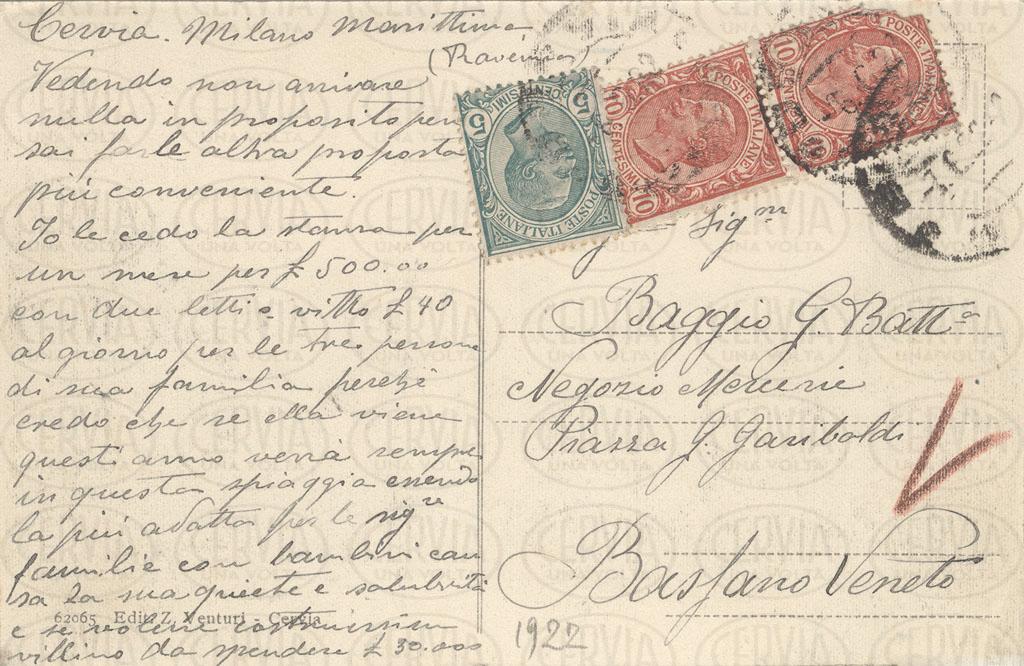 Cervia. Milano Marittima
(Ravenna)
Vedendo non arrivare
nulla in proposito per
sai farle altra proposta
più conveniente.
Io le cedo la stanza per
un mese per £ 500.00
con due letti e vitto £ 40
al giorno per le tre persone
di sua famiglia perchè
credo che se ella viene
quest'anno verrà sempre
in questa spiaggia essendo
la più adatta per le sig.re
familie con bambini cau
sa la sua quiete e salubrità
e se volesse costruirsi un
villino da spendere £ 30.000
62065 Edit. Z. Venturi - Cervia
5 CENTESIMI 5
POSTE ITALIANE
10 CENTESIMI 10
POSTE ITALIANE
10 CENTESIMI 10
POSTE ITALIANE
Sig.r
Baggio G. Batt.a
Negozio Mercerie
Piazza G. Garibaldi
Bassano Veneto
1922
CERVIA
UNA VOLTA